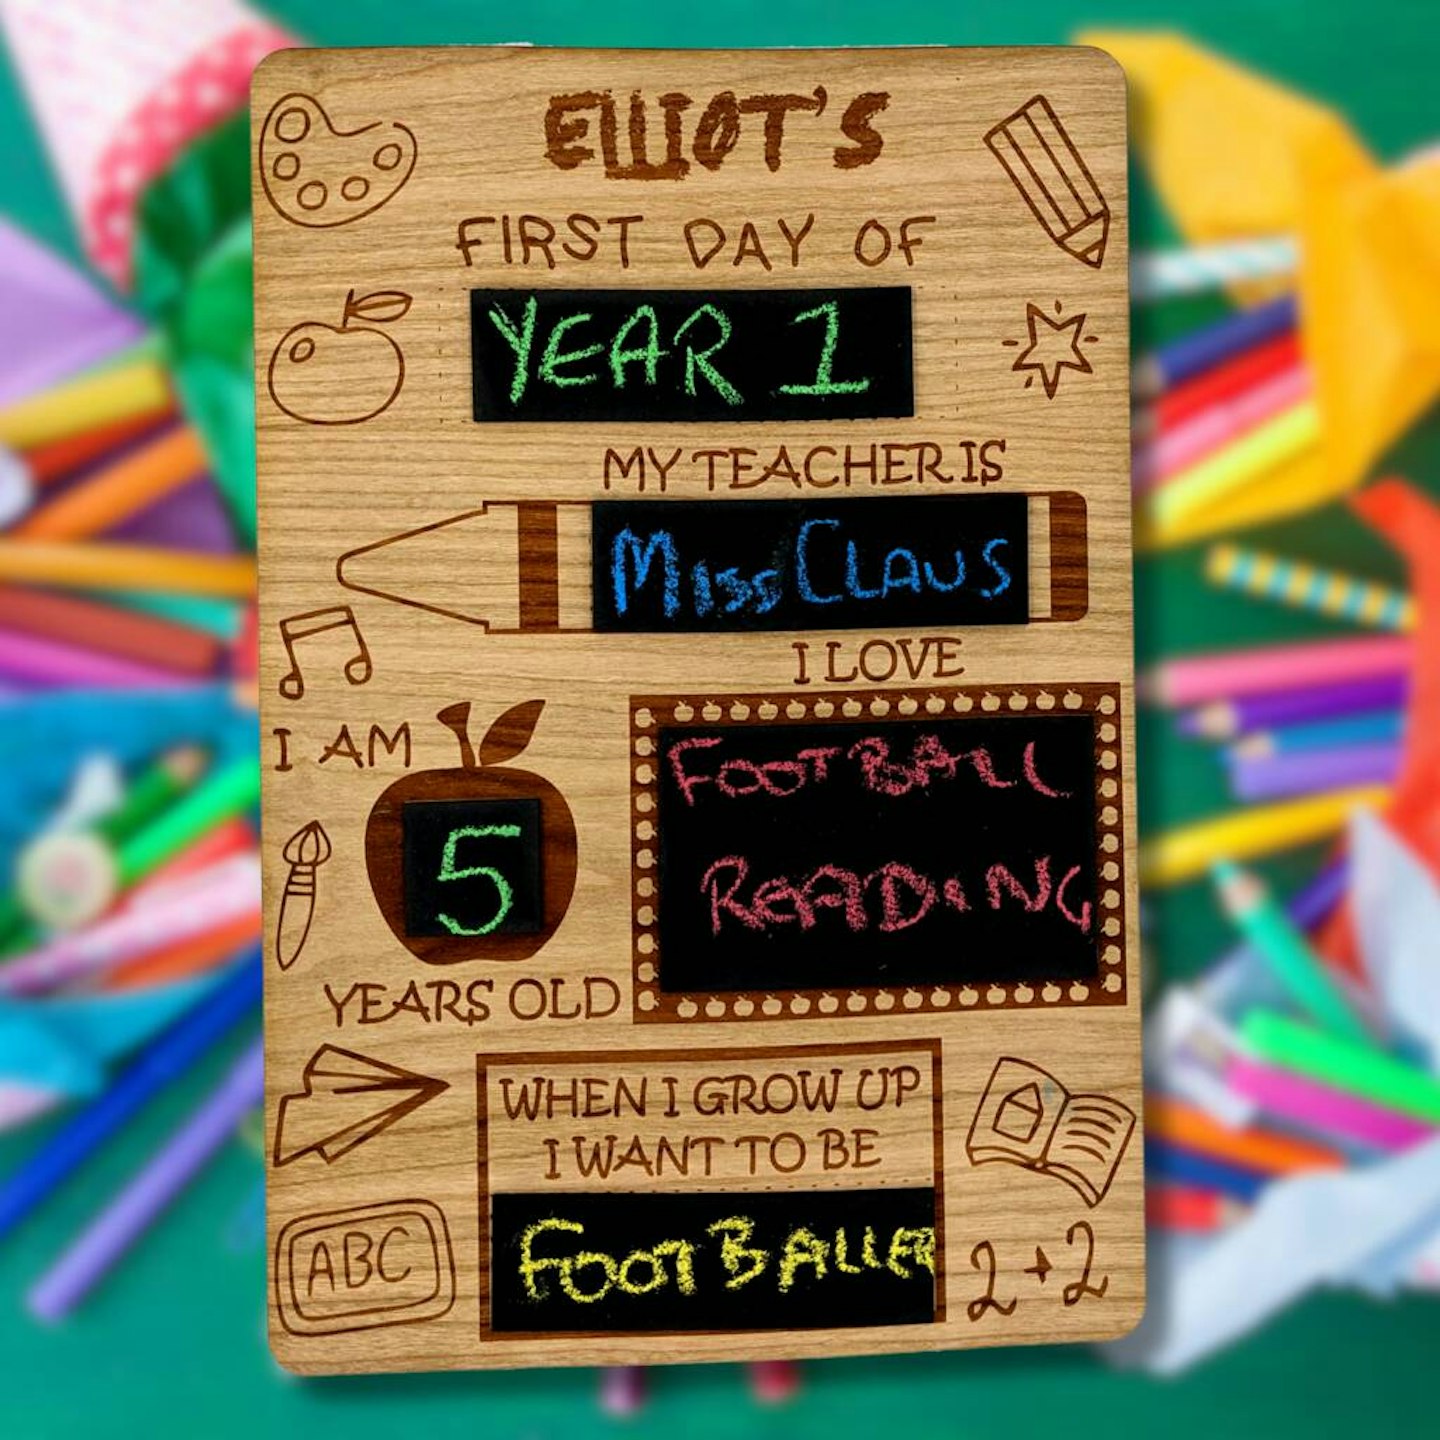 ELLIOT'S
FIRST DAY OF
YEAR 1
MY TEACHER IS
MISS CLAUS
I LOVE
FOOTBALL
READING
I AM
5
YEARS OLD
WHEN I GROW UP
I WANT TO BE
FOOTBALLER
ABC
2+2